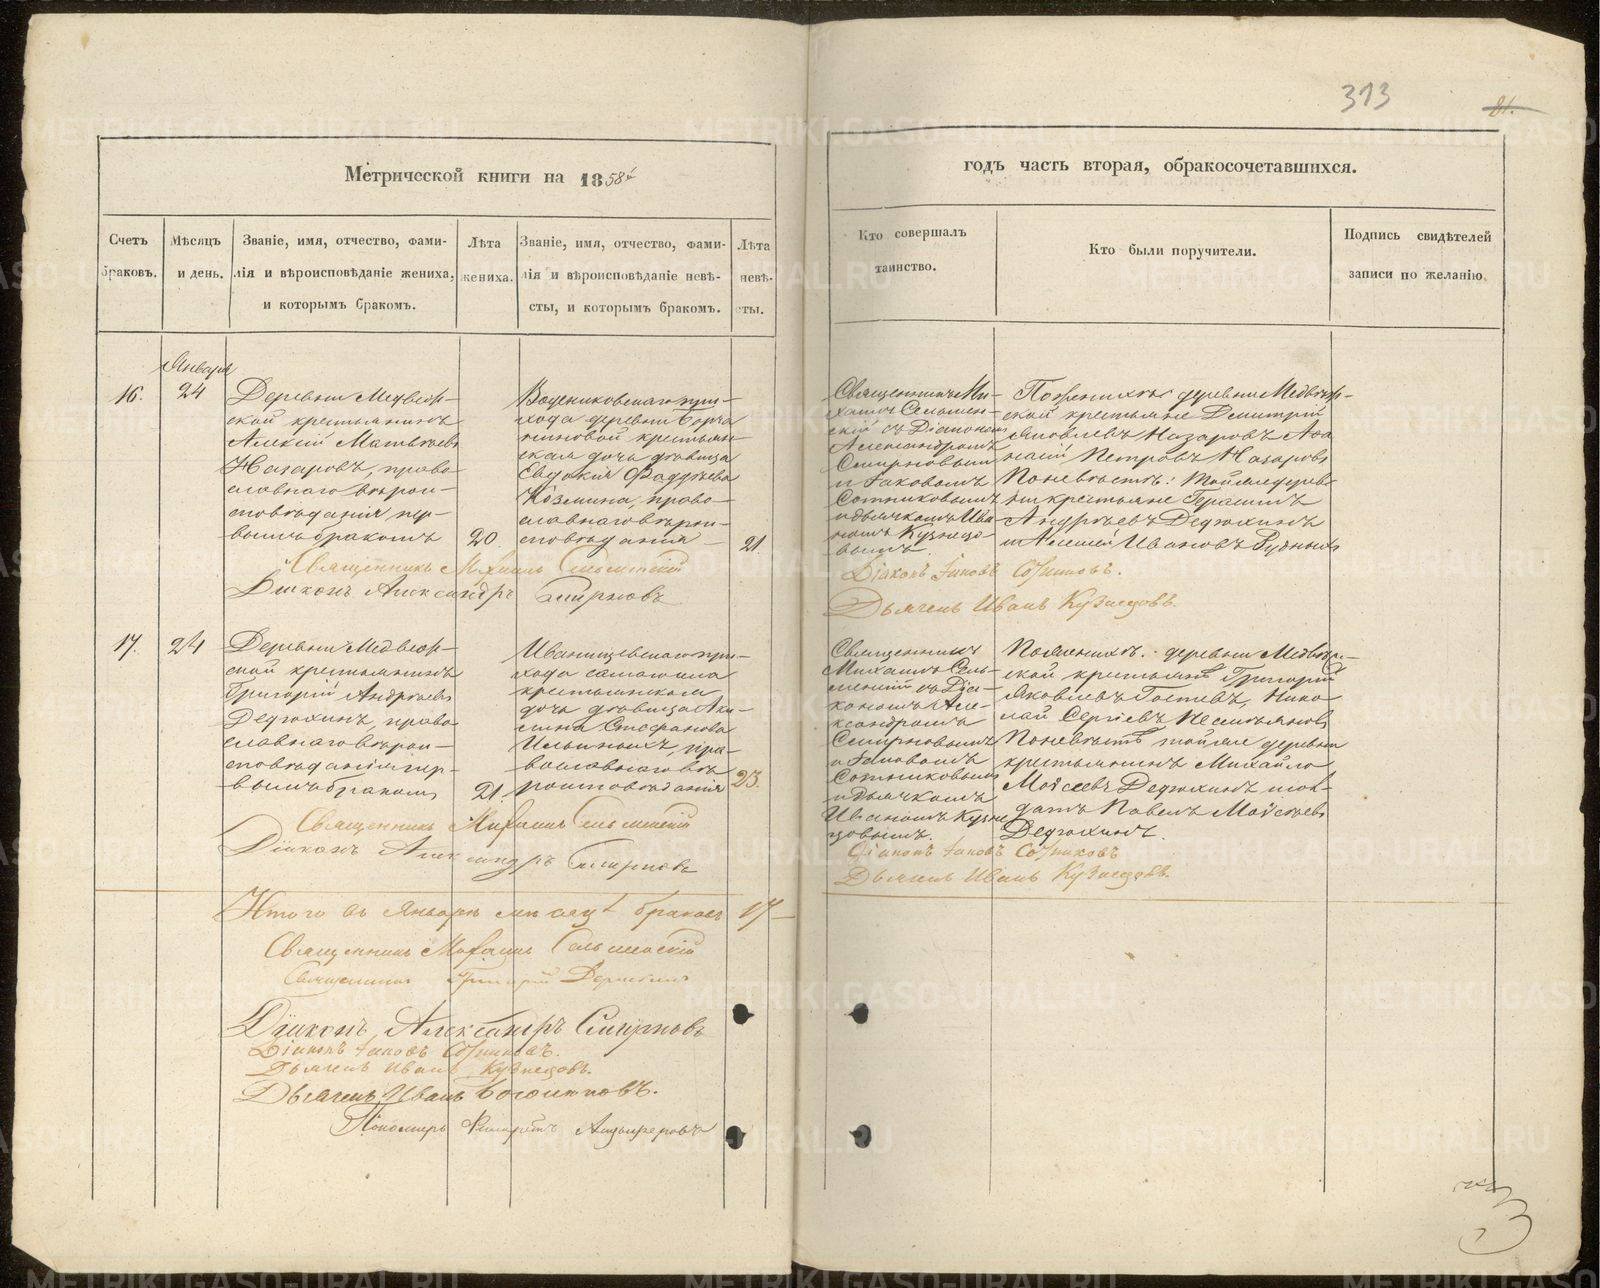 313
81.
Метрической книги на 1858й
годъ часть вторая, обракосочетавшихся.
Счетъ браковъ.
Мѣсяцъ и день.
Званіе, имя, отчество, фами-
лія и вѣроисповѣданіе жениха,
и которымъ бракомъ.
Лѣта жениха.
Званіе, имя, отчество, фами-
лія и вѣроисповѣданіе невѣ-
сты, и которымъ бракомъ.
Лѣта невѣ-
сты.
Кто совершалъ
таинство.
Кто были поручители.
Подпись свидѣтелей
записи по желанію.
Января
16.
24
Деревни Медвеж-
ской крестьянинъ
Алексій Матвѣевъ
Назаровъ, право-
славнаго вѣрои-
сповѣданія пер-
вымъ бракомъ
20.
прихода деревни
крестьян-
ская дочь дѣвица
Евдокия Фаддѣева
Козмина, право-
славнаго вѣрои-
сповѣданія
21.
Священникъ Ми-
хаилъ
съ Діакономъ
Александромъ
Смирновымъ
и Іаковомъ
Сотниковымъ
и дьячкомъ Ива-
номъ Кузнецо-
вымъ.
По женихѣ деревни Медвеж-
ской крестьяне Димитрій
Яковлевъ Назаровъ Афа
насій Петровъ Назаровъ
По невѣстѣ: той же дерев-
ни крестьяне Герасимъ
Андрѣевъ Дедюхинъ
и Алексей Ивановъ
Священникъ Михаилъ
Діаконъ Александръ Смирновъ
Діаконъ Іаковъ Сотниковъ.
Дьячекъ Иванъ Кузнецовъ.
17.
24
Деревни Медвеж-
ской крестьянинъ
Григорій Андрѣевъ
Дедюхинъ, право
славнаго вѣрои-
сповѣданія пер-
вымъ бракомъ
21.
Иванищевскаго при-
хода
крестьянская
дочь дѣвица Аки-
лина Стефанова
Ильиныхъ, пра-
вославнаго вѣ
роисповѣданія
23.
Священникъ
Михаилъ
съ Діа-
кономъ Але-
ксандромъ
Смирновымъ
и Іаковомъ
Сотниковымъ
и дьячкомъ
Иваномъ Кузне
цовымъ.
По женихѣ: деревни Медвеж-
ской крестьяне Григорій
Яковлевъ Нико-
лай Сергѣевъ
По невѣстѣ той же деревни
крестьянинъ Михайло
Моисеевъ Дедюхинъ и сол-
датъ Павелъ Моисеевъ
Дедюхинъ.
Священникъ Михаилъ
Діаконъ Александръ Смирновъ
Діаконъ Іаковъ Сотниковъ
Дьячекъ Иванъ Кузнецовъ.
Итого въ Январѣ мѣсяцѣ браковъ 17
Священникъ Михаилъ
Священникъ Григорій
Діаконъ Александръ Смирновъ
Діаконъ Іаковъ Сотниковъ.
Дьячекъ Иванъ Кузнецовъ.
Дьячекъ Иванъ
Пономарь
METRIKI.GASO-URAL.RU